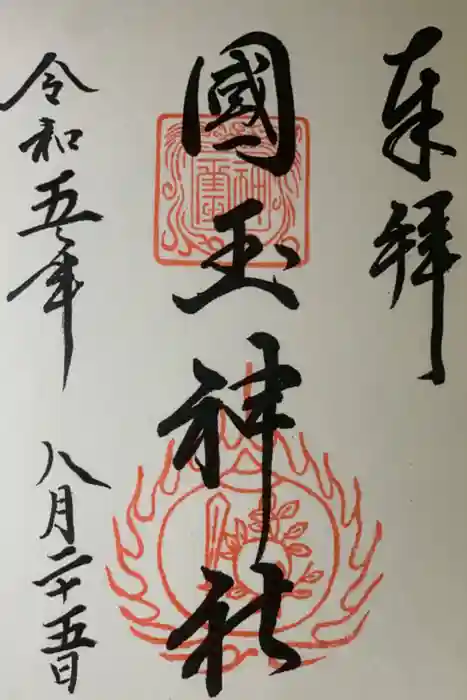 奉拜
國玉神社
令和五年 八月二十五日